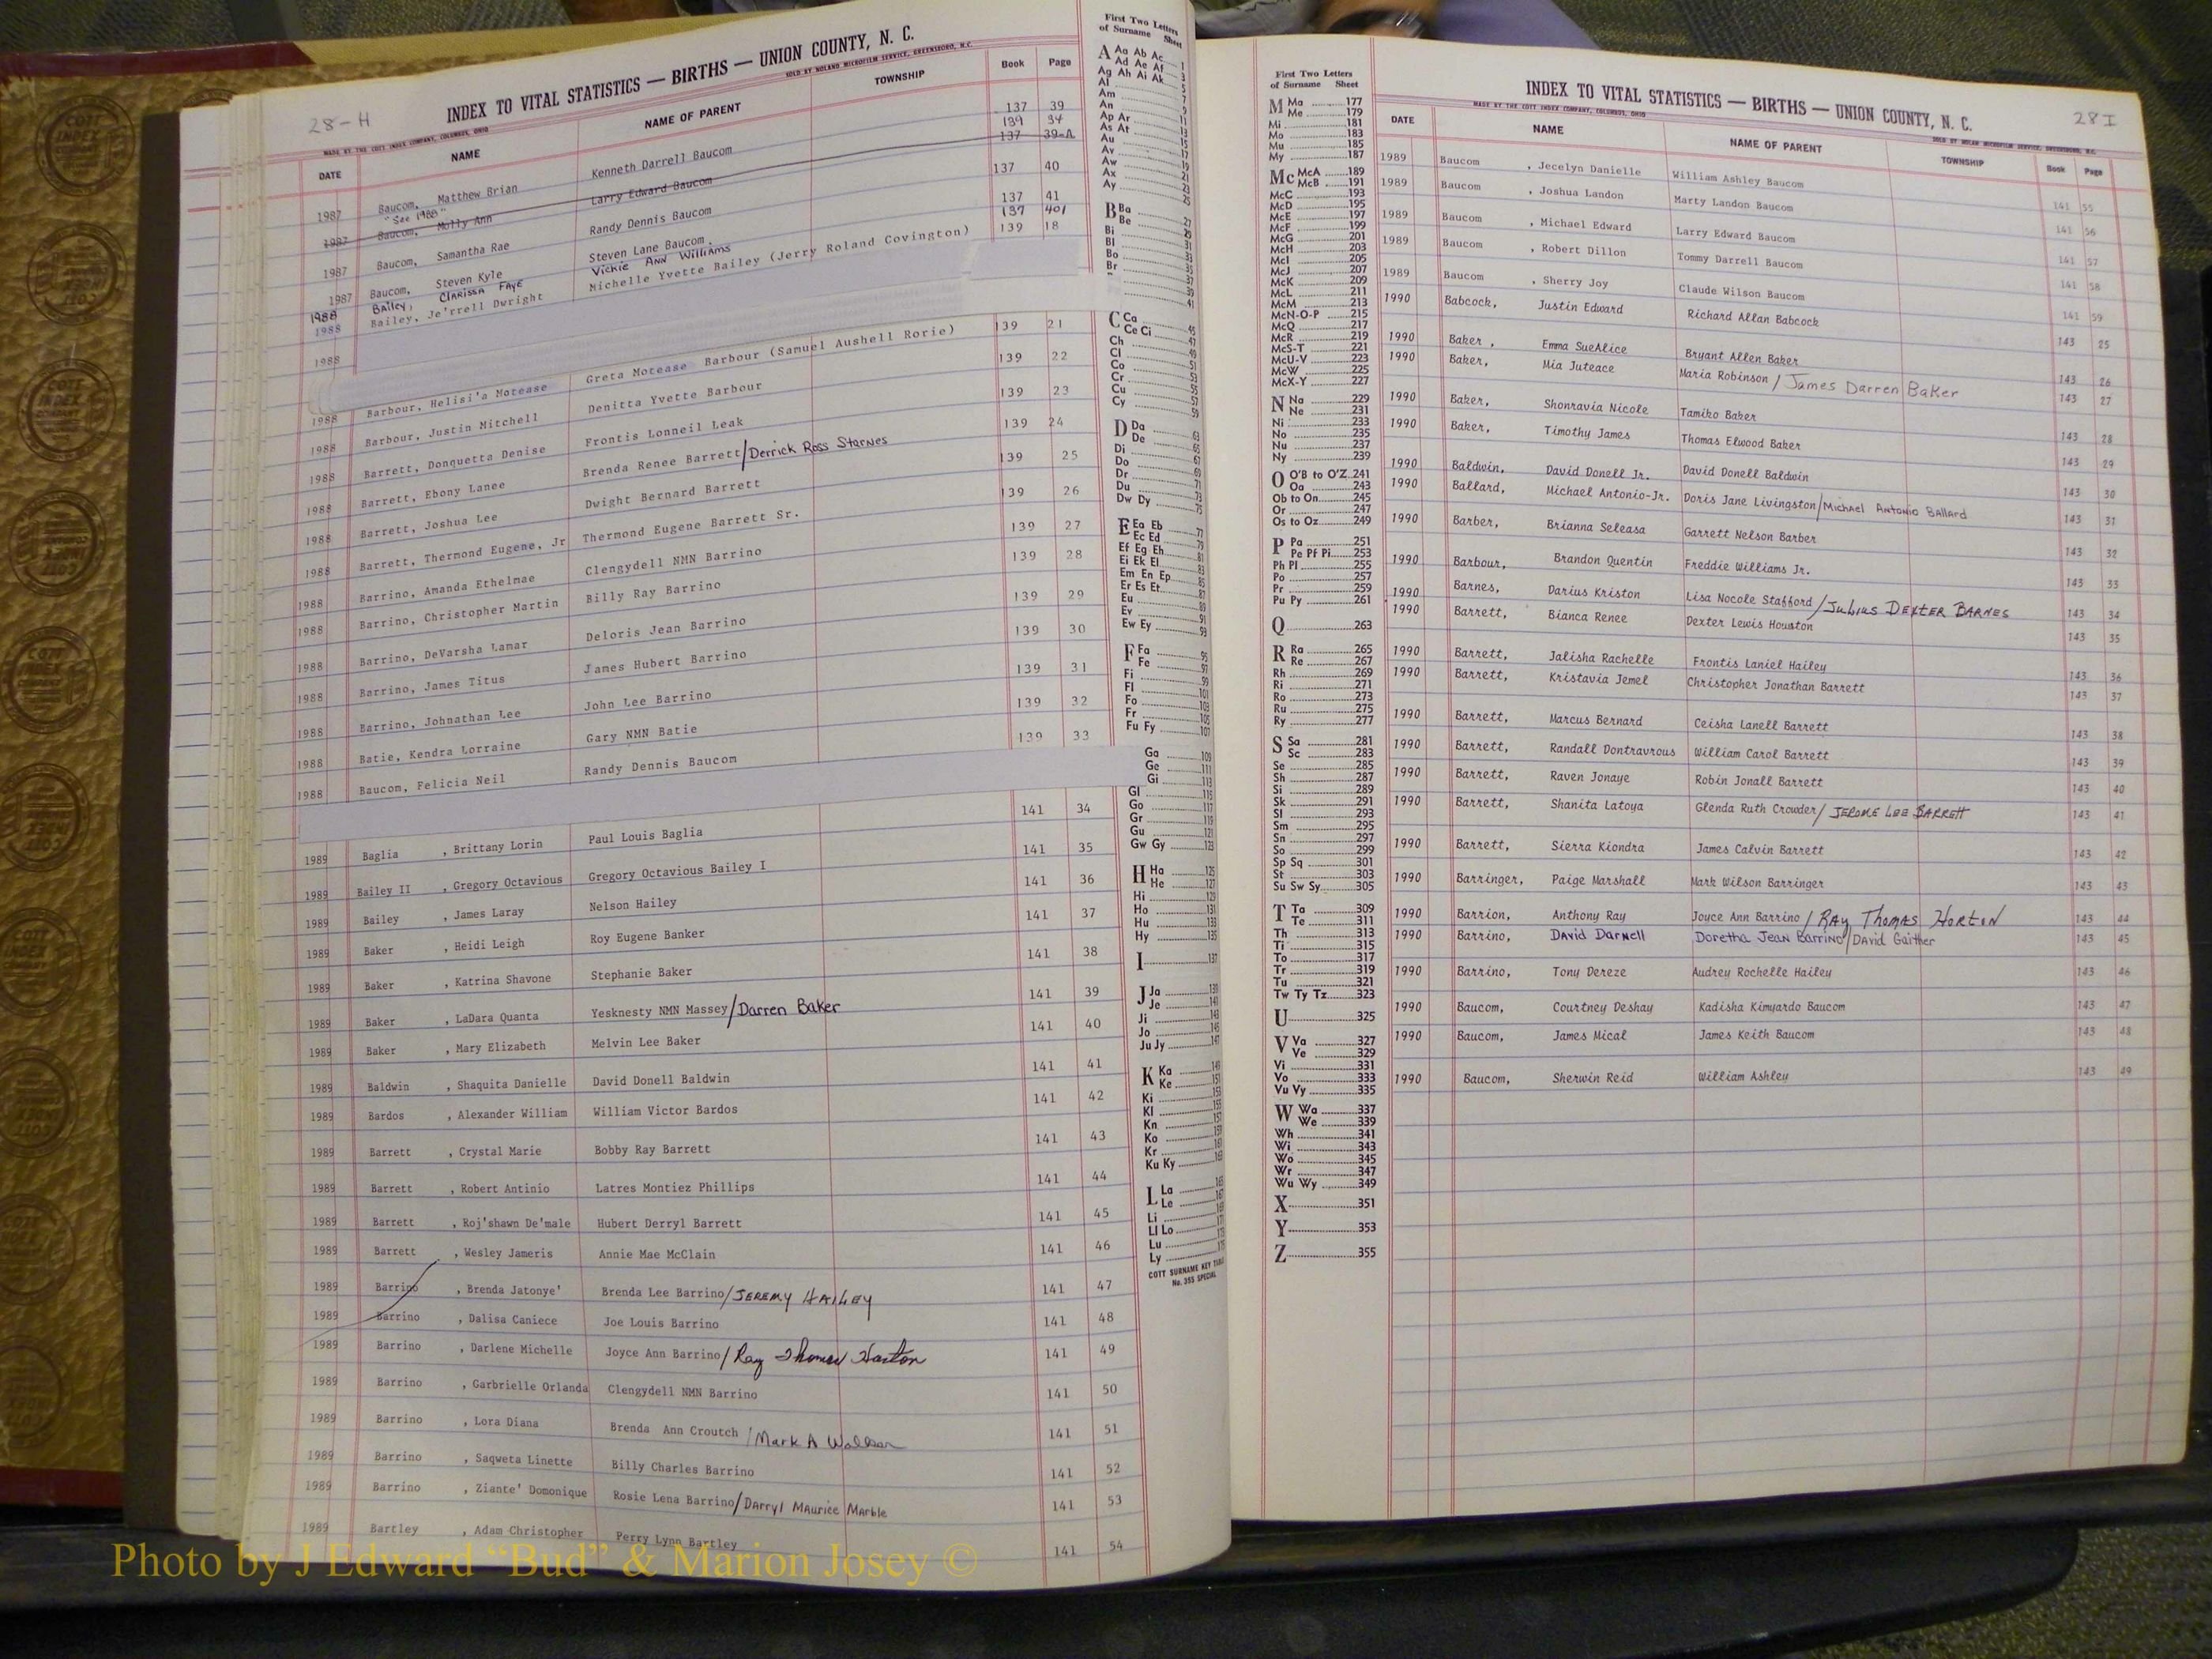 28-H
INDEX TO VITAL STATISTICS — BIRTHS — UNION COUNTY, N. C.
MADE BY THE COTT INDEX COMPANY, COLUMBUS, OHIO
SOLD BY NOLAND MICROFILM SERVICE, GREENSBORO, N.C.
DATE NAME NAME OF PARENT TOWNSHIP Book Page
1987 Baucom, Matthew Brian Kenneth Darrell Baucom 137 39
"See 1988" 139 34
1987 Baucom, Molly Ann Larry Edward Baucom 137 39-A
1987 Baucom, Samantha Rae Randy Dennis Baucom 137 40
1987 Baucom, Steven Kyle Steven Lane Baucom 137 41
1988 Bailey, Clarissa Faye Vickie Ann Williams 137 401
1988 Bailey, Je'rrell Dwright Michelle Yvette Bailey (Jerry Roland Covington) 139 18
1988
1988 Barbour, Helisi'a Motease Greta Motease Barbour (Samuel Aushell Rorie) 139 21
1988 Barbour, Justin Mitchell Denitta Yvette Barbour 139 22
1988 Barrett, Donquetta Denise Frontis Lonneil Leak 139 23
1988 Barrett, Ebony Lanee Brenda Renee Barrett/Derrick Ross Starnes 139 24
1988 Barrett, Joshua Lee Dwight Bernard Barrett 139 25
1988 Barrett, Thermond Eugene, Jr Thermond Eugene Barrett Sr. 139 26
1988 Barrino, Amanda Ethelmae Clengydell NMN Barrino 139 27
1988 Barrino, Christopher Martin Billy Ray Barrino 139 28
1988 Barrino, DeVarsha Lamar Deloris Jean Barrino 139 29
1988 Barrino, James Titus James Hubert Barrino 139 30
1988 Barrino, Johnathan Lee John Lee Barrino 139 31
1988 Batie, Kendra Lorraine Gary NMN Batie 139 32
1988 Baucom, Felicia Neil Randy Dennis Baucom 139 33
1989 Baglia , Brittany Lorin Paul Louis Baglia 141 34
1989 Bailey II , Gregory Octavious Gregory Octavious Bailey I 141 35
1989 Bailey , James Laray Nelson Hailey 141 36
1989 Baker , Heidi Leigh Roy Eugene Banker 141 37
1989 Baker , Katrina Shavone Stephanie Baker 141 38
1989 Baker , LaDara Quanta Yesknesty NMN Massey/Darren Baker 141 39
1989 Baker , Mary Elizabeth Melvin Lee Baker 141 40
1989 Baldwin , Shaquita Danielle David Donell Baldwin 141 41
1989 Bardos , Alexander William William Victor Bardos 141 42
1989 Barrett , Crystal Marie Bobby Ray Barrett 141 43
1989 Barrett , Robert Antinio Latres Montiez Phillips 141 44
1989 Barrett , Roj'shawn De'male Hubert Derryl Barrett 141 45
1989 Barrett , Wesley Jameris Annie Mae McClain 141 46
1989 Barrino , Brenda Jatonye' Brenda Lee Barrino/JEREMY HAILEY 141 47
1989 Barrino , Dalisa Caniece Joe Louis Barrino 141 48
1989 Barrino , Darlene Michelle Joyce Ann Barrino/Ray Thomas Horton 141 49
1989 Barrino , Garbrielle Orlanda Clengydell NMN Barrino 141 50
1989 Barrino , Lora Diana Brenda Ann Croutch /Mark A 141 51
1989 Barrino , Saqweta Linette Billy Charles Barrino 141 52
1989 Barrino , Ziante' Domonique Rosie Lena Barrino/Darryl Maurice Marble 141 53
1989 Bartley , Adam Christopher Perry Lynn Bartley 141 54
First Two Letters
of Surname Sheet
A Aa Ab Ac 1
Ad Ae Af 3
Ag Ah Ai Ak 5
Al
Am
An
Ap Ar 11
As At 13
Au 15
Av 17
Aw 19
Ax 21
Ay 23
25
B Ba 27
Be 29
Bi 31
Bl 33
Bo 35
Br 37
39
41
C Ca 45
Ce Ci 47
Ch 49
Cl 51
Co 53
Cr 55
Cu 57
Cy 59
D Da 63
De 65
Di 67
Do 69
Dr 71
Du 73
Dw Dy 75
E Ea Eb 77
Ec Ed 79
Ef Eg Eh 81
Ei Ek El 83
Em En Ep 85
Er Es Et 87
Eu 89
Ev 91
Ew Ey 93
F Fa 95
Fe 97
Fi 99
Fl 101
Fo 103
Fr 105
Fu Fy 107
Ga 109
Ge 111
Gi 113
Gl 115
Go 117
Gr 119
Gu 121
Gw Gy 123
H Ha 125
He 127
Hi 129
Ho 131
Hu 133
Hy 135
I 137
J Ja 139
Je 141
Ji 143
Jo 145
Ju Jy 147
K Ka 149
Ke 151
Ki 153
Kl 155
Kn 157
Ko 159
Kr 161
Ku Ky 163
L La 165
Le 167
Li 169
Ll Lo 171
Lu 173
Ly 175
COTT SURNAME KEY TABLE
No. 355 SPECIAL
First Two Letters
of Surname Sheet
M Ma 177
Me 179
Mi 181
Mo 183
Mu 185
My 187
Mc McA 189
McB 191
McC 193
McD 195
McE 197
McF 199
McG 201
McH 203
McI 205
McJ 207
McK 209
McL 211
McM 213
McN-O-P 215
McQ 217
McR 219
McS-T 221
McU-V 223
McW 225
McX-Y 227
N Na 229
Ne 231
Ni 233
No 235
Nu 237
Ny 239
O O'B to O'Z 241
Oa 243
Ob to On 245
Or 247
Os to Oz 249
P Pa 251
Pe Pf Pi 253
Ph Pl 255
Po 257
Pr 259
Pu Py 261
Q 263
R Ra 265
Re 267
Rh 269
Ri 271
Ro 273
Ru 275
Ry 277
S Sa 281
Sc 283
Se 285
Sh 287
Si 289
Sk 291
Sl 293
Sm 295
Sn 297
So 299
Sp Sq 301
St 303
Su Sw Sy 305
T Ta 309
Te 311
Th 313
Ti 315
To 317
Tr 319
Tu 321
Tw Ty Tz 323
U 325
V Va 327
Ve 329
Vi 331
Vo 333
Vu Vy 335
W Wa 337
We 339
Wh 341
Wi 343
Wo 345
Wr 347
Wu Wy 349
X 351
Y 353
Z 355
28 I
INDEX TO VITAL STATISTICS — BIRTHS — UNION COUNTY, N. C.
MADE BY THE COTT INDEX COMPANY, COLUMBUS, OHIO
SOLD BY NOLAND MICROFILM SERVICE, GREENSBORO, N.C.
DATE NAME NAME OF PARENT TOWNSHIP Book Page
1989 Baucom , Jecelyn Danielle William Ashley Baucom 141 55
1989 Baucom , Joshua Landon Marty Landon Baucom 141 56
1989 Baucom , Michael Edward Larry Edward Baucom 141 57
1989 Baucom , Robert Dillon Tommy Darrell Baucom 141 58
1989 Baucom , Sherry Joy Claude Wilson Baucom 141 59
1990 Babcock, Justin Edward Richard Allan Babcock 143 25
1990 Baker , Emma SueAlice Bryant Allen Baker 143 26
1990 Baker, Mia Juteace Maria Robinson / James Darren Baker 143 27
1990 Baker, Shonravia Nicole Tamiko Baker 143 28
1990 Baker, Timothy James Thomas Elwood Baker 143 29
1990 Baldwin, David Donell Jr. David Donell Baldwin 143 30
1990 Ballard, Michael Antonio-Jr. Doris Jane Livingston/Michael Antonio Ballard 143 31
1990 Barber, Brianna Seleasa Garrett Nelson Barber 143 32
1990 Barbour, Brandon Quentin Freddie Williams Jr. 143 33
1990 Barnes, Darius Kriston Lisa Nocole Stafford /JULIUS DEXTER BARNES 143 34
1990 Barrett, Bianca Renee Dexter Lewis Houston 143 35
1990 Barrett, Jalisha Rachelle Frontis Laniel Hailey 143 36
1990 Barrett, Kristavia Jemel Christopher Jonathan Barrett 143 37
1990 Barrett, Marcus Bernard Ceisha Lanell Barrett 143 38
1990 Barrett, Randall Dontravrous William Carol Barrett 143 39
1990 Barrett, Raven Jonaye Robin Jonall Barrett 143 40
1990 Barrett, Shanita Latoya Glenda Ruth Crowder/ JEROME LEE BARRETT 143 41
1990 Barrett, Sierra Kiondra James Calvin Barrett 143 42
1990 Barringer, Paige Marshall Mark Wilson Barringer 143 43
1990 Barrion, Anthony Ray Joyce Ann Barrino / RAY THOMAS HORTON 143 44
1990 Barrino, David Darnell Doretha Jean Barrino/David Gaither 143 45
1990 Barrino, Tony Dereze Audrey Rochelle Hailey 143 46
1990 Baucom, Courtney Deshay Kadisha Kimyardo Baucom 143 47
1990 Baucom, James Mical James Keith Baucom 143 48
1990 Baucom, Sherwin Reid William Ashley 143 49
Photo by J Edward “Bud” & Marion Josey ©